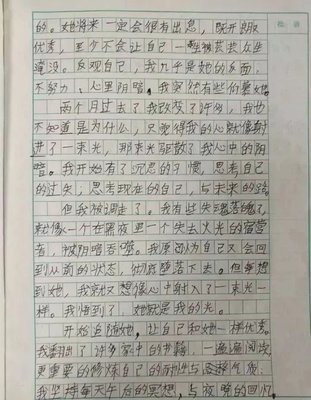 的。她将来一定会很有出息，既开朗
优秀，至少不会让自己一生被芸芸众生
淹没。反观自己，我几乎是她的反面，
不努力、心里阴暗。我突然有些仰慕她。
两个月过去了我改变了许多，我也
不知道是为什么，只觉得我的心就像射
进了一束光，那束光驱散了我心中的阴
暗。我开始有了沉思的习惯，思考自己
的过失，思考现在的自己，与未来的路。
但我被调走了。我有些失魂落魄了，
就像一个在黑夜里一个失去火光的
者，被阴暗吞噬。我原以为自己又会回
到从前的状态，彻底堕落下去。但每想
到她，我就又想像心中射入了一束光一
样。我悟到了，她就是我的光。
开始追随她，让自己和她一样优秀。
我翻出了许多家中的书籍，一遍遍阅读，
更重要的修炼自己的耐性与
我坚持每天午后的冥想，与夜晚的回忆，